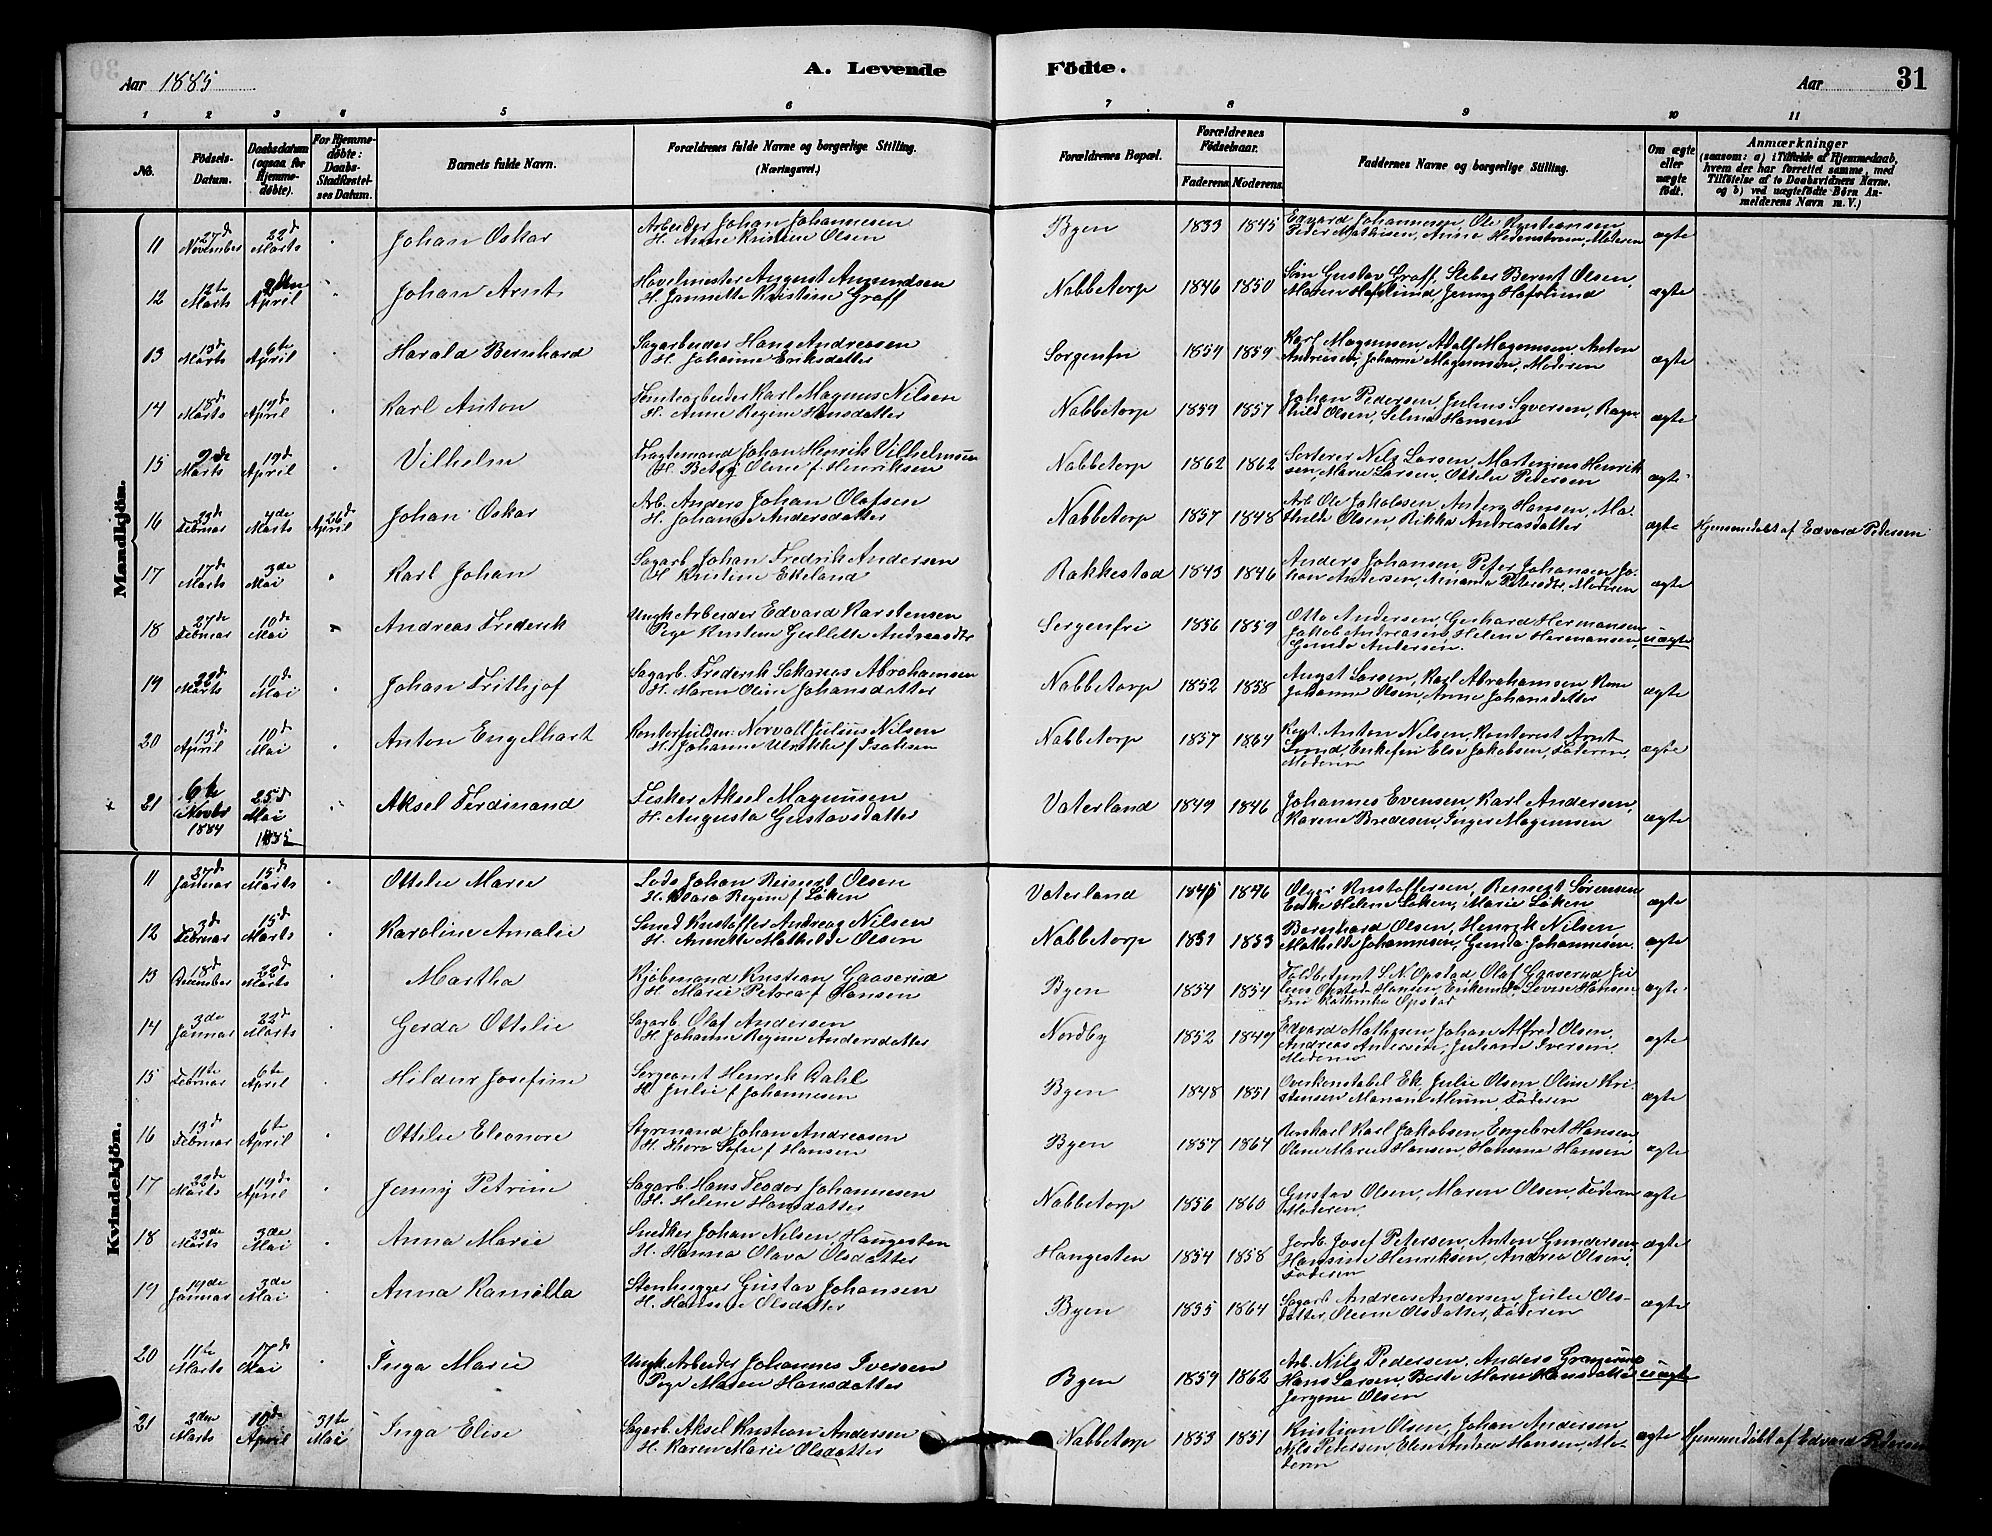 Aar 1885
A. Levende Födte.
Aar 31
1 2 3 4 5 6 7 8 9 10 11
No.
Födsels-Datum.
Daabsdatum (ogsaa for Hjemmedöbte).
For Hjemmedöbte: Daabs-Stadfæstelses Datum.
Barnets fulde Navn.
Forældrenes fulde Navne og borgerlige Stilling. (Næringsvei.)
Forældrenes Bopæl.
Forældrenes Födselsaar.
Faderens. Moderens.
Faddernes Navne og borgerlige Stilling.
Om ægte eller uægte födt.
Anmærkninger
(saasom: a) i Tilfælde af Hjemmedaab, hvem der har forrettet samme, med Tilföielse af to Daabsvidners Navne, og b) ved uægtefödte Börn Anmelderens Navn m. V.)
Mandkjön.
11 27d November 22d Marts Johan Oskar Arbeider Johan Johannesen
H. Anne Kristine Olsen Byen 1833 1845 Edvard Johannesen, Ole Kristiansen
Peder Mathisen, Anna Hedenstrøm, Moderen ægte
12 12te Marts April Johan Arnt Høvelmester August Amundsen
H. Jannette Kristine Graff Nabbetorp 1846 1850 Gustav Graff, Sleber Bernt Olsen,
Maren Hafslund, Jenny Hafslund ægte
13 13d Marts 6te April Harald Bernhard Sagarbeider Hans Andreasen
H. Johanne Eriksdatter Sorgenfri 1854 1859 Karl Magnusen, Adolf Magnusen, Anton
Andreasen, Johanne Magnusen, Moderen ægte
14 18d Marts 19d April Karl Anton Tomtearbeider Karl Magnus Nilsen
H. Anne Regine Hansdatter Nabbetorp 1859 1857 Johan Pedersen, Julius Syversen, Ragn
hild Olsen, Selma Hansen ægte
15 9de Marts 19d April Vilhelm Fragtemand Johan Henrik Vilhelmsen
H. Betsy Oline f Henriksen Nabbetorp 1862 1862 Sorterer Nils Larsen, Martinius Henrik
sen, Marie Larsen, Ottilie Pedersen ægte
16 23d Februar 4de Marts 26d April Johan Oskar Arb. Anders Johan Olafsen
H. Johanne Andersdatter Nabbetorp 1857 1848 Arb Ole Jakobsen, Anberg Hansen, Ma-
thilde Olsen, Rikka Andreasdatter ægte Hjemmedøbt af Edvard Pedersen
17 17d Marts 3de Mai Karl Johan Sagarb Johan Fredrik Andersen
H Kristine Ekeland Rakkestad 1843 1846 Anders Johansen, Peter Johansen, Jo-
han Andersen, Amanda Petersdtr, Moderen ægte
18 27d Februar 10d Mai Andreas Frederik Ungk Arbeider Edvard Karstensen
Pige Kirstine Gullette Andreasdtr Sorgenfri 1856 1859 Otto Andersen, Gerhard Hermansen,
Jakob Andreasen, Helene Hermansen,
Gunda Andersen. uægte
19 22d Marts 10d Mai Johan Frithjof Sagarb. Frederik Sakarias Abrahamsen
H. Maren Oline Johansdatter Nabbetorp 1852 1858 August Larsen, Karl Abrahamsen, Kone
Johanne Olsen, Anne Johansdatter ægte
20 13d April 10d Mai Anton Engelhart Kontorfuldm. Norvall Julius Nilsen
H. Johanne Ulrikke f Isaksen Nabbetorp 1857 1864 Kapt. Anton Nilsen, Kontorist Arnt
Lund, Enkefru Else Jakobsen, Faderen,
Moderen ægte
21 6te Novbr 1884 25d Mai 1885 Aksel Ferdinand Fisker Aksel Magnusen
H. Augusta Gustavsdatter Vaterland 1849 1846 Johannes Evensen, Karl Andersen,
Karene Bredesen, Inger Magnusen ægte
Kvindekjön.
11 27d Januar 15d Marts Ottilie Marie Lods Johan Reinert Olsen
H. Klara Regine f Løken Vaterland 1845 1846 Olger Kristoffersen, Reinert Sørensen
Enke Helene Løken, Marie Løken ægte
12 3d Februar 15d Marts Karoline Amalie Smed Kristoffer Andreas Nilsen
H. Annette Mathilde Olsen Nabbetorp 1851 1853 Bernhard Olsen, Henrik Nilsen
Mathilde Johannesen, Gunda Johannesen. ægte
13 18d December 22d Marts Martha Kjøbmand Kristian Gaaserud
H. Marie Petrea f Hansen Byen 1854 1854 Toldbetjent S. N. Opstad, Olaf Gaaserud, Ju
lius Opstad Hansen, Enkemad. Lovise Hansen
Opstad ægte
14 3de Januar 22d Marts Gerda Ottilie Sagarb. Olaf Andersen
H. Johanne Regine Andersdatter Nordby 1852 1849 Edvard Mathisen, Johan Alfred Olsen
Andreas Andersen, Juliane Iversen,
Moderen ægte
15 11te Februar 6te April Hildur Josefine Sergeant Henrik Dahl
H Julie f Johannesen Byen 1848 1851 Overkonstabel Ek, Julie Olsen, Oline Kri
stensen Mariane Moum, Faderen ægte
16 13d Februar 6te April Ottilie Eleonore Styrmand Johan Andreasen
H. Thora Sofie f Hansen Byen 1857 1864 Ungkarl Karl Jakobsen Engebret Hansen
Oline Marie Hansen, Johanne Hansen ægte
17 22de Marts 19d April Jenny Petrine Sagarb. Hans Teodor Johannesen
H. Helene Hansdatter Nabbetorp 1856 1860 Gustav Olsen, Maren Olsen, Faderen
Moderen. ægte
18 23de Marts 3de Mai Anna Marie Snedker Johan Nilsen, Haugesten
H. Hanna Olava Olsdatter Haugesten 1854 1858 Jordb. Josef Petersen, Anton Gundersen
Hansine Henriksen, Andrea Olsen,
Faderen ægte
19 19de Januar 3de Mai Anna Kamilla Stenhugger Gustav Johansen
H. Hansine Olsdatter Byen 1855 1864 Sagarb Andreas Andersen, Julie Ols-
datter, Oline Olsdatter, Faderen ægte
20 11te Marts 17d Mai Inga Marie Ungk. Arbeider Johannes Iversen
Pige Maren Hansdatter Byen 1859 1862 Arb. Nils Pedersen, Anders
Hans Larsen, Berte Marie Hansdatter
Jørgine Olsen uægte
21 Marts 10d April 31te Mai Inga Elise Sagarb. Aksel Kristian Andersen
H. Karen Marie Olsdatter Nabbetorp 1853 1851 Kristian Olsen, Johan Andersen
Nils Petersen, Andrea Hansen, Mo-
deren ægte Hjemmedøbt af Edvard Pedersen